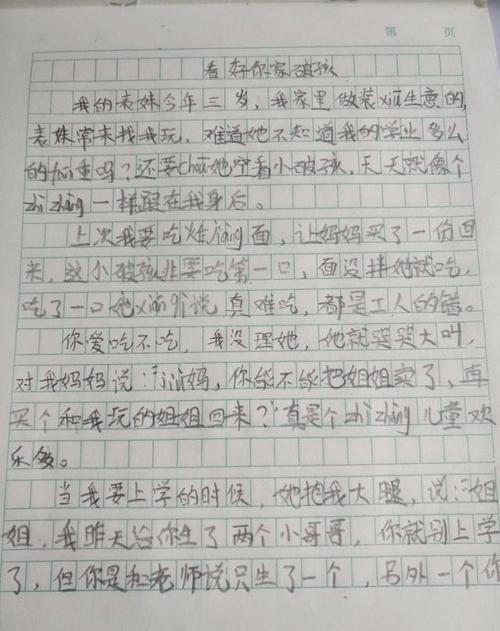 第 页
看好你家破孩
我的表妹今年三岁，我家里做装xiū生意的，
表妹常来找我玩，难道她不知道我的学业多么
的fán重吗？还要chōu她空看小破孩，天天就像个
zhì zhàng一样跟在我身后。
上次我要吃炸jiàng面，让妈妈买了一份回
来，这小破孩非要吃第一口，面没拌她就吃，
吃了一口她xián 说真难吃，都是工人的错。
你爱吃不吃，我没理她，她就哭哭大叫，
对我妈妈说：jiù妈，你能不能把姐姐卖了，再
买个和我玩的姐姐回来？"真是个zhì zhàng儿童欢
乐多。
当我要上学的时候，她抱我大腿，说：姐
姐，我昨天给你生了两个小哥哥，你就别上学
了，但你是和老师说只生了一个，另外一个你